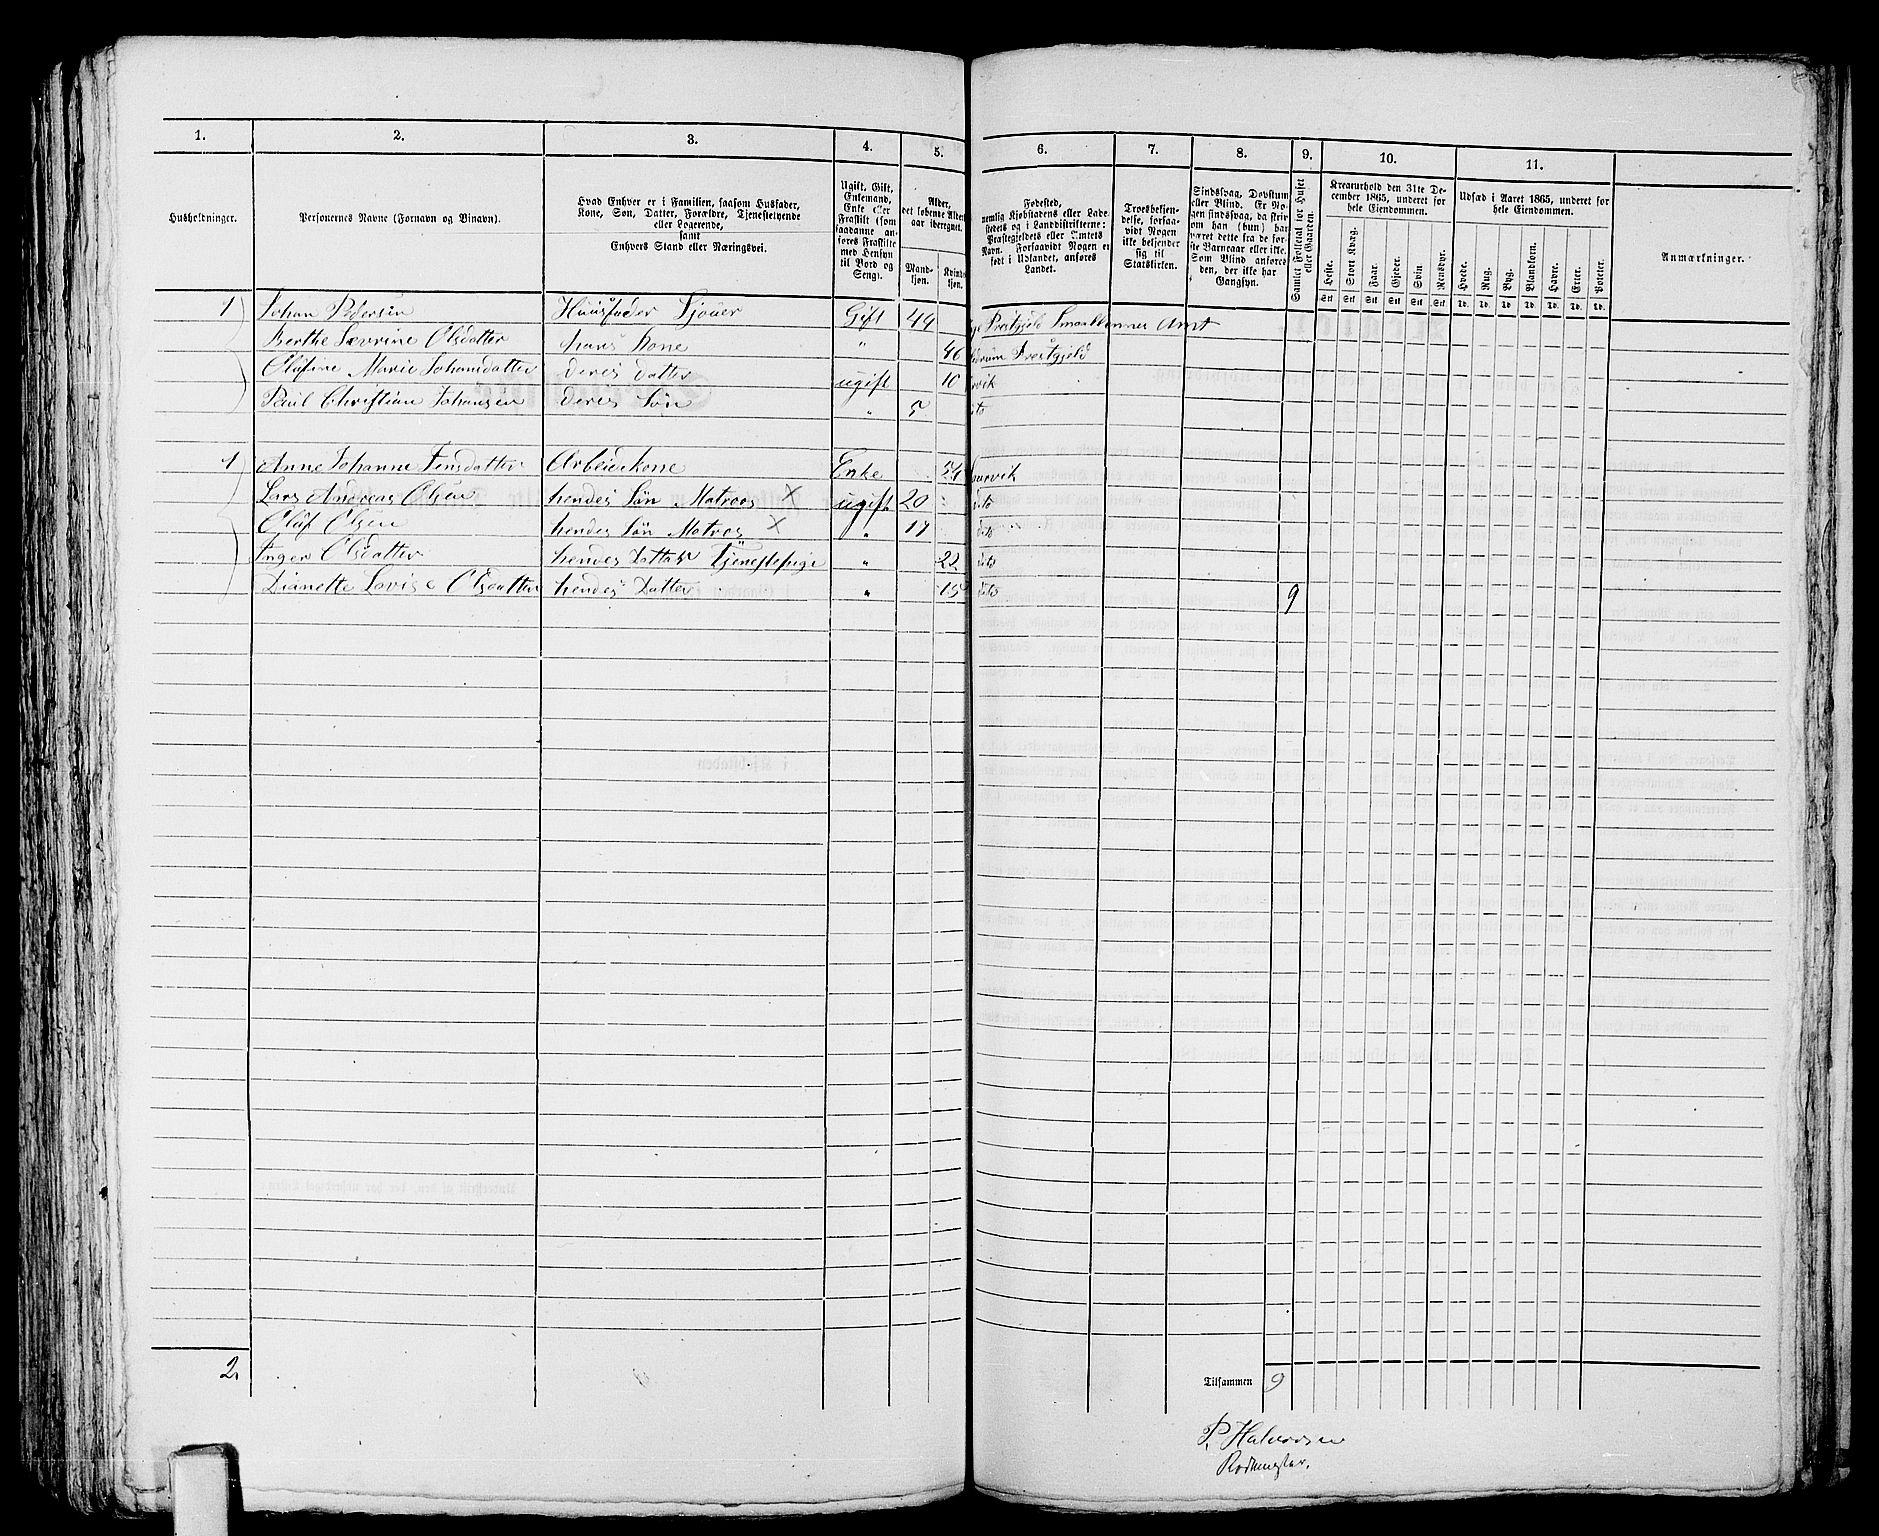 1. 2. 3. 4. 5. 6. 7. 8. 9. 10. 11.
Husholdninger.
Personernes Navne (Fornavn og Binavn).
Hvad Enhver er i Familien, saasom Husfader,
Kone, Søn, Datter, Forældre, Tjenestetyende
eller Logerende,
samt
Enhvers Stand eller Næringsvei.
Ugift, Gift,
Enkemand,
Enke eller
Fraskilt (som
saadanne an-
føres Fraskilte
med Hensyn
til Bord og
Seng).
Alder,
det løbende Alders-
aar iberegnet.
Mand-
kjøn.
Kvind
kjøn.
Fødested,
nemlig Kjøbstadens eller Lade-
stedets og i Landdistrikterne:
Præstegjeldets eller Amtets
Navn. Forsaavidt Nogen er
født i Udlandet, anføres
Landet.
Troesbekjen-
delse, forsaa-
vidt Nogen
ikke bekjender
sig til
Statskirken.
Sindssvag, Døvstum
eller Blind. Er No-
gen sindssvag, da skriv
om han (hun) har
været dette fra de før-
ste Barneaar eller ikke.
Som Blind anføres
den, der ikke har
Gangsyn.
Samlet Folketal for Huset
eller Gaarden.
Kreaturhold den 31te De-
cember 1865, underet for
hele Eiendommen.
Heste. Stort Kvæg. Faar. Gjeder. Svin. Rensdyr.
Stk Stk Stk Stk Stk Stk
Udsæd i Aaret 1865, underet for
hele Eiendommen.
Hvede. Rug. Byg. Blandkorn. Havre. Erter. Poteter.
Td. Td. Td. Td. Td. Td. Td.
Anmærkninger.
1 Johan Pedersen Huusfader Sjouer Gift 44 Prestgjeld Smaalenenes Amt
Berthe Sævrine Olsdatter hans Kone " 46 Prestgjeld
Olafine Marie Johansdatter deres datter ugift 10 rvik
Paul Christian Johansen deres Søn " 5 dito
1 Anne Johanne Jensdatter Arbeidskone Enke 54 aurvik
Lars Andreas Olsen hendes Søn Matroes X ugift 20 dito
Oluf Olsen hendes Søn Matros X " 17 dito
Inger Olsdatter hendes Datter Tjenestepige " 22 dito
Dianette Lovise Olsdatter hendes Datter " 15 dito 9
2.
Tilsammen 9
P. Halvorsen
Rodemester.